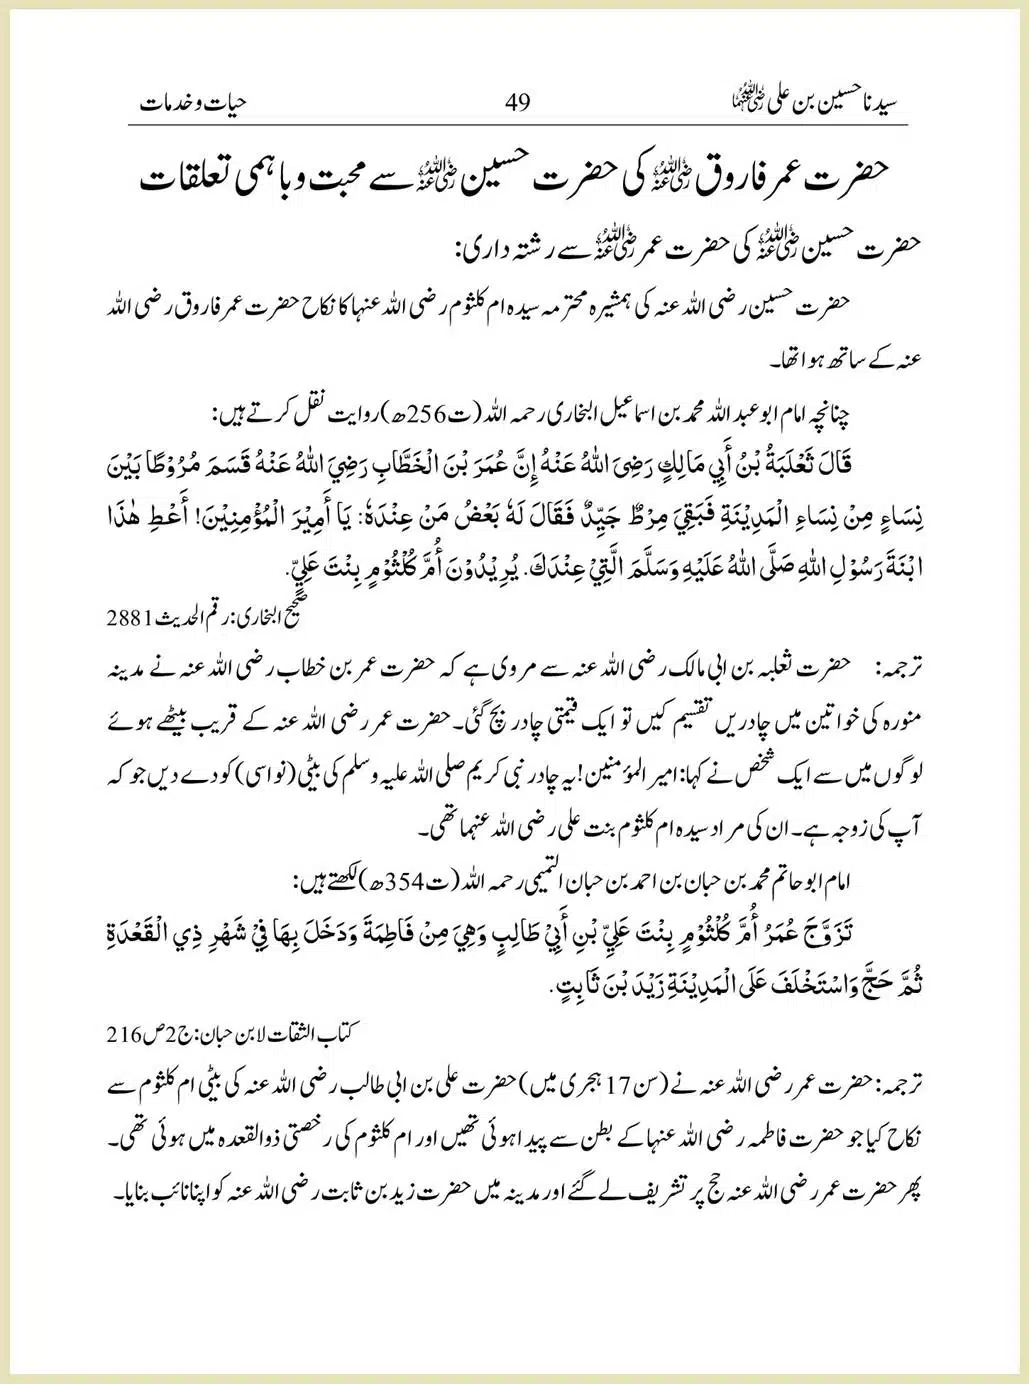 سیدنا حسین بن علی رضی اللہ عنہما 49 حیات و خدمات
حضرت عمر فاروق رضی اللہ عنہ کی حضرت حسین رضی اللہ عنہ سے محبت و باہمی تعلقات
حضرت حسین رضی اللہ عنہ کی حضرت عمر رضی اللہ عنہ سے رشتہ داری:
حضرت حسین رضی اللہ عنہ کی ہمشیرہ محترمہ سیدہ ام کلثوم رضی اللہ عنہا کا نکاح حضرت عمر فاروق رضی اللہ
عنہ کے ساتھ ہوا تھا۔
چنانچہ امام ابو عبد اللہ محمد بن اسماعیل البخاری رحمہ اللہ (ت256ھ) روایت نقل کرتے ہیں:
قَالَ ثَعْلَبَةُ بْنُ أَبِي مَالِكٍ رَضِیَ اللهُ عَنْهُ إِنَّ عُمَرَ بْنَ الْخَطَّابِ رَضِيَ اللهُ عَنْهُ قَسَمَ مُرُوْطًا بَيْنَ
نِسَاءٍ مِنْ نِسَاءِ الْمَدِيْنَةِ فَبَقِيَ مِرْطٌ جَيِّدٌ فَقَالَ لَهٗ بَعْضُ مَنْ عِنْدَهٗ: يَا أَمِيْرَ الْمُؤْمِنِيْنَ! أَعْطِ هٰذَا
ابْنَةَ رَسُوْلِ اللهِ صَلَّى اللهُ عَلَيْهِ وَسَلَّمَ الَّتِيْ عِنْدَكَ. يُرِيْدُوْنَ أُمَّ كُلْثُوْمٍ بِنْتَ عَلِيٍّ.
صحیح البخاری: رقم الحدیث 2881
ترجمہ: حضرت ثعلبہ بن ابی مالک رضی اللہ عنہ سے مروی ہے کہ حضرت عمر بن خطاب رضی اللہ عنہ نے مدینہ
منورہ کی خواتین میں چادریں تقسیم کیں تو ایک قیمتی چادر بچ گئی۔ حضرت عمر رضی اللہ عنہ کے قریب بیٹھے ہوئے
لوگوں میں سے ایک شخص نے کہا: امیر المؤمنین! یہ چادر نبی کریم صلی اللہ علیہ وسلم کی بیٹی (نواسی) کو دے دیں جو کہ
آپ کی زوجہ ہے۔ ان کی مراد سیدہ ام کلثوم بنت علی رضی اللہ عنہما تھی۔
امام ابو حاتم محمد بن حبان بن احمد بن حبان التمیمی رحمہ اللہ (ت354ھ) لکھتے ہیں:
تَزَوَّجَ عُمَرُ أُمَّ كُلْثُوْمٍ بِنْتَ عَلِيِّ بْنِ أَبِيْ طَالِبٍ وَهِيَ مِنْ فَاطِمَةَ وَدَخَلَ بِهَا فِيْ شَهْرِ ذِي الْقَعْدَةِ
ثُمَّ حَجَّ وَاسْتَخْلَفَ عَلَى الْمَدِيْنَةِ زَيْدَ بْنَ ثَابِتٍ.
کتاب الثقات لابن حبان: ج2 ص216
ترجمہ: حضرت عمر رضی اللہ عنہ نے (سن 17 ہجری میں) حضرت علی بن ابی طالب رضی اللہ عنہ کی بیٹی ام کلثوم سے
نکاح کیا جو حضرت فاطمہ رضی اللہ عنہا کے بطن سے پیدا ہوئی تھیں اور ام کلثوم کی رخصتی ذوالقعدہ میں ہوئی تھی۔
پھر حضرت عمر رضی اللہ عنہ حج پر تشریف لے گئے اور مدینہ میں حضرت زید بن ثابت رضی اللہ عنہ کو اپنا نائب بنایا۔